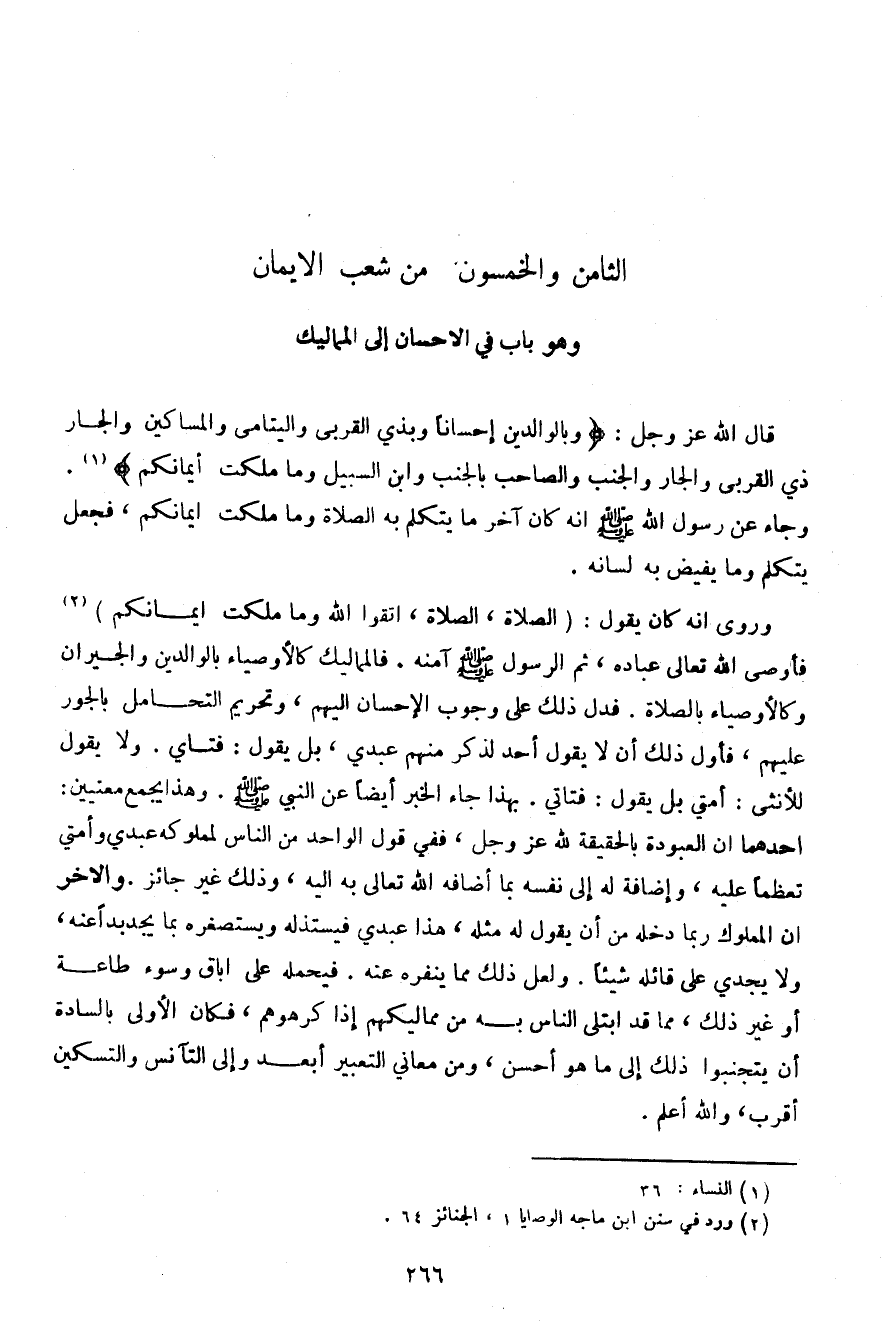 الثامن والخمسون من شعب الايمان
وهو باب في الاحسان إلى المماليك
قال الله عز وجل : ﴿ وبالوالدين إحساناً وبذي القربى واليتامى والمساكين والجـار
ذي القربى والجار والجنب والصاحب بالجنب وابن السبيل وما ملكت أيمانكم ﴾ (١) .
وجاء عن رسول الله ﷺ انه كان آخر ما يتكلم به الصلاة وما ملكت ايمانكم ، فجعل
يتكلم وما يفيض به لسانه .
وروى انه كان يقول : ( الصلاة ، الصلاة ، اتقوا الله وما ملكت ايمـــانكم ) (٢)
فأوصى الله تعالى عباده ، ثم الرسول ﷺ آمنه . فالمماليك كالأوصياء بالوالدين والجـيران
وكالأوصياء بالصلاة . فدل ذلك على وجوب الإحسان اليهم ، وتحريم التحـــامل بالجور
عليهم ، فأول ذلك أن لا يقول أحد لذكر منهم عبدي ، بل يقول : فتـاي . ولا يقول
للأنثى : أمتي بل يقول : فتاتي . بهذا جاء الخبر أيضاً عن النبي ﷺ . وهذا يجمع معنيين :
احدهما ان العبودة بالحقيقة لله عز وجل ، ففي قول الواحد من الناس لمملوكه عبدي وأمتي
تعظماً عليه ، وإضافة له إلى نفسه بما أضافه الله تعالى به اليه ، وذلك غير جائز . والاخر
ان المملوك ربما دخله من أن يقول له مثله ، هذا عبدي فيستذله ويستصغره بما يجدبدأعنه ،
ولا يجدي على قائله شيئاً . ولعل ذلك مما ينفره عنه . فيحمله على اباق وسوء طاعـــة
أو غير ذلك ، مما قد ابتلى الناس بـــه من مماليكهم إذا كرهوهم ، فـكان الأولى بالسادة
أن يتجنبوا ذلك إلى ما هو أحسن ، ومن معاني التعبير أبعـــد وإلى التآنس والتسكين
أقرب ، والله أعلم .
(١) النساء : ٣٦
(٢) ورد في سنن ابن ماجه الوصايا ١ ، الجنائز ٦٤ .
٢٦٦